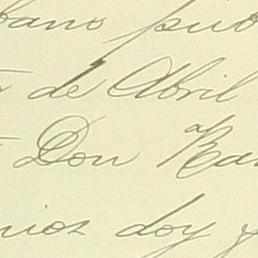 bano pub
de Abril
Don Ra
nios doy